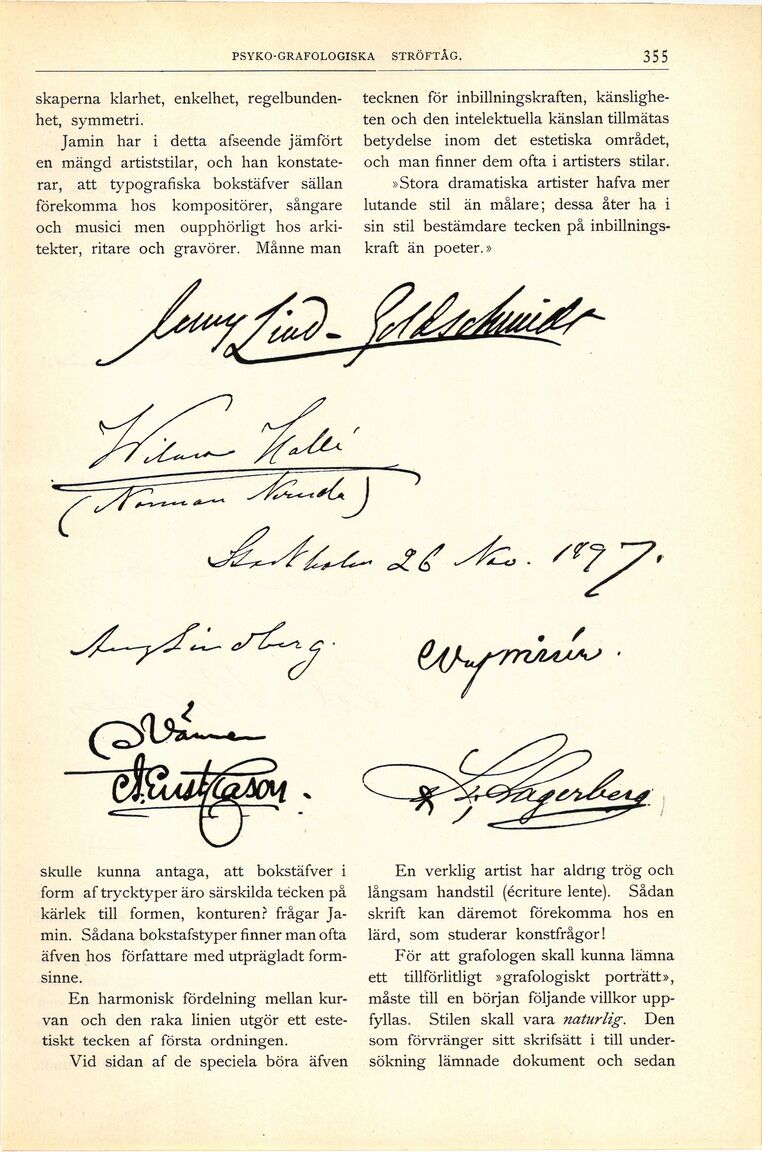 PSYKO-GRAFOLOGISKA STRÖFTÅG. 355
skaperna klarhet, enkelhet, regelbunden-
het, symmetri.
Jamin har i detta afseende jämfört
en mängd artiststilar, och han konstate-
rar, att typografiska bokstäfver sällan
förekomma hos kompositörer, sångare
och musici men oupphörligt hos arki-
tekter, ritare och gravörer. Månne man
tecknen för inbillningskraften, känslighe-
ten och den intelektuella känslan tillmätas
betydelse inom det estetiska området,
och man finner dem ofta i artisters stilar.
»Stora dramatiska artister hafva mer
lutande stil än målare; dessa åter ha i
sin stil bestämdare tecken på inbillnings-
kraft än poeter.»
Jenny Lind-Goldschmidt
Wilma Hallé
(Norman Neruda)
Stockholm 26 Nov. 1897.
Aug Lindberg.
Vännen
Lagerberg
skulle kunna antaga, att bokstäfver i
form af trycktyper äro särskilda tecken på
kärlek till formen, konturen? frågar Ja-
min. Sådana bokstafstyper finner man ofta
äfven hos författare med utprägladt form-
sinne.
En harmonisk fördelning mellan kur-
van och den raka linien utgör ett este-
tiskt tecken af första ordningen.
Vid sidan af de speciela böra äfven
En verklig artist har aldrig trög och
långsam handstil (écriture lente). Sådan
skrift kan däremot förekomma hos en
lärd, som studerar konstfrågor!
För att grafologen skall kunna lämna
ett tillförlitligt »grafologiskt porträtt»,
måste till en början följande villkor upp-
fyllas. Stilen skall vara naturlig. Den
som förvränger sitt skrifsätt i till under-
sökning lämnade dokument och sedan